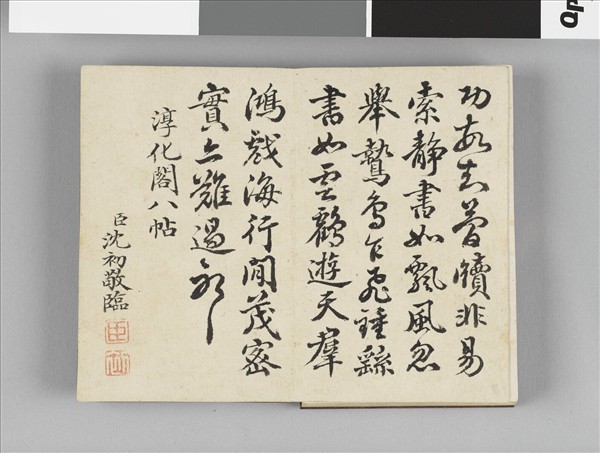 功牘非易
索靜書如飄風忽
舉鷙鳥乍飛鍾繇
書如雲鶴遊天羣
鴻戲海行間茂密
實亦難過
淳化閣八帖
臣沈初敬臨
臣